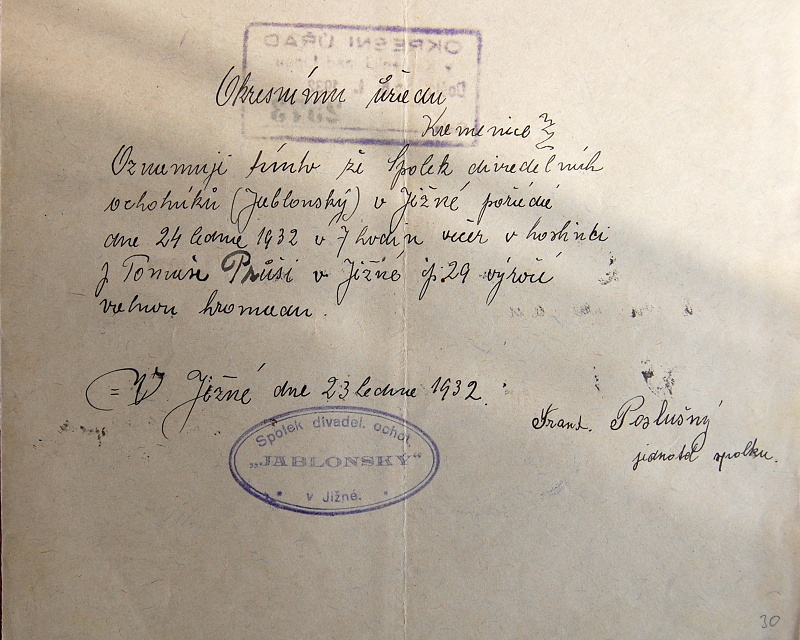 OKRESNÍ ÚŘAD
Okresnímu úřadu
Kamenice
Oznamuji tímto že Spolek divadelních
ochotníků (Jablonský) v Jižné pořádá
dne 24 ledna 1932 v 7 hodin večer v hostinci
p Tomáše Průši v Jižné čp. 29 výroční
valnou hromadu.
V Jižné dne 23 ledna 1932.
Frant. Poslušný
jednatel spolku.
Spolek divadel. ochot.
„JABLONSKÝ"
v Jižné.
30